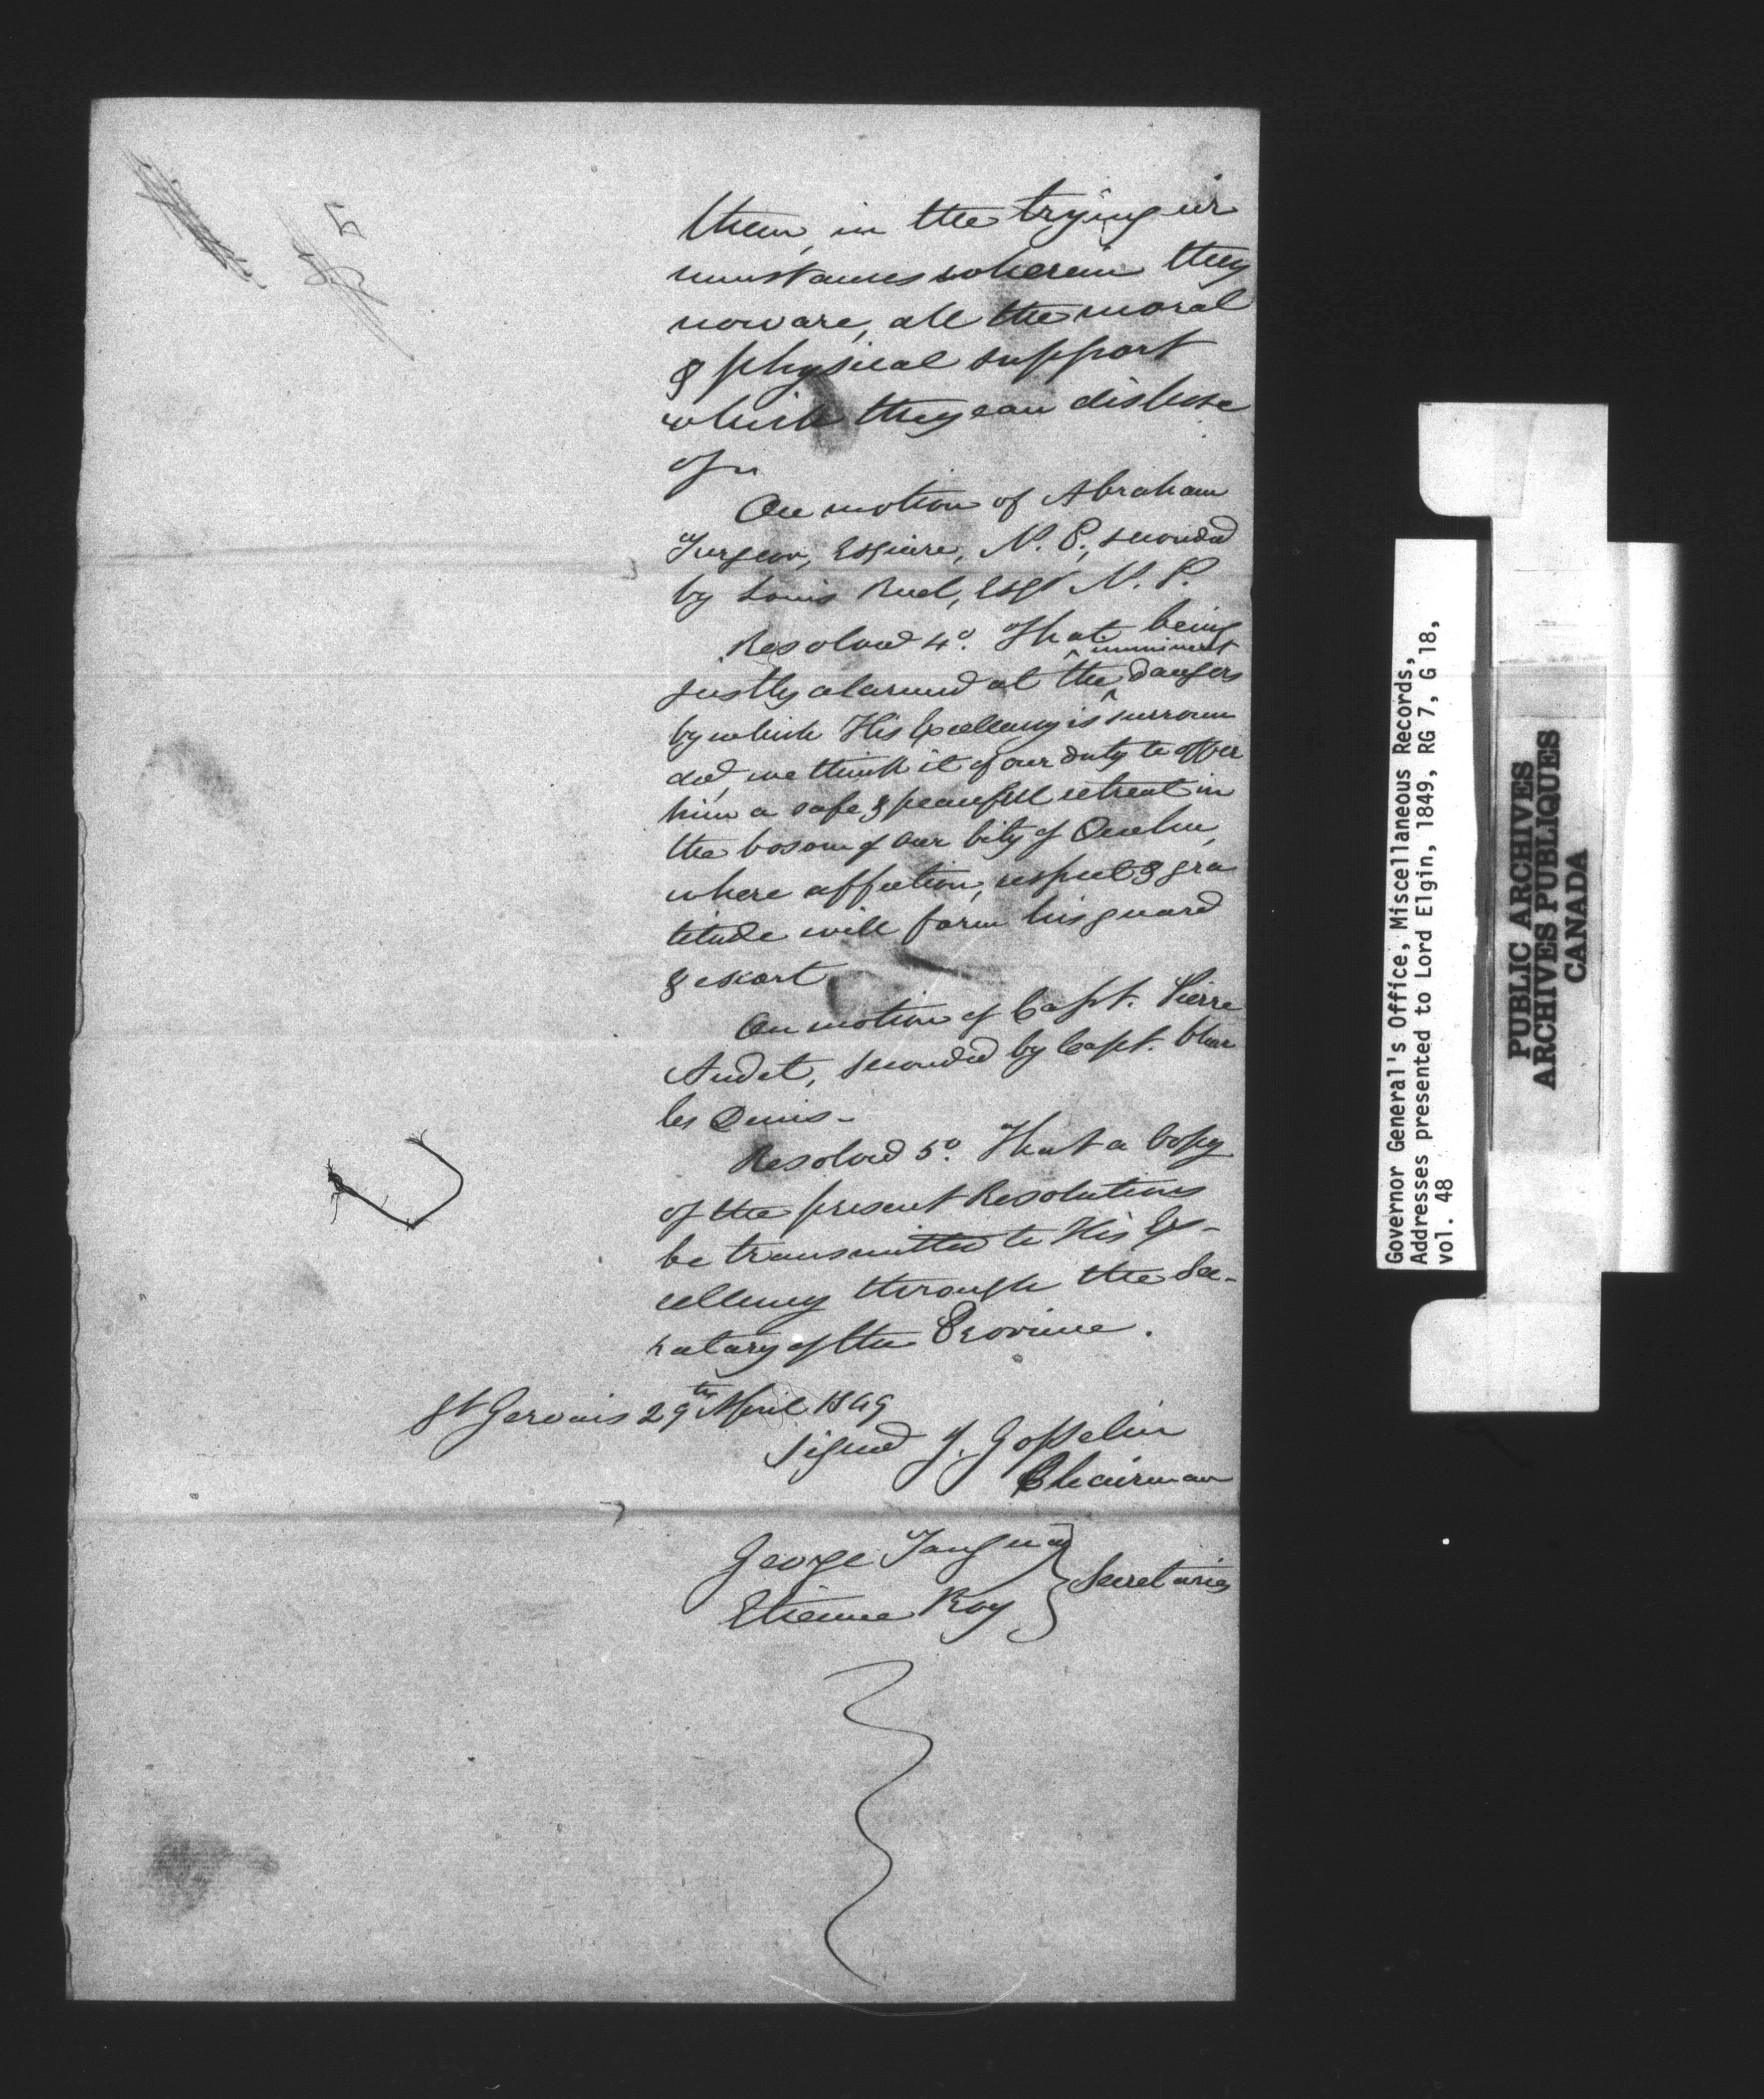 them, in the trying cir
cumstances wherein they
now are, all the moral
& physical support
which they can dispose
of.
On motion of Abraham
Turgeon, Esquire, N. P., seconded
by Louis Ruel, Esqr N. P.
Resolved 4o. That being
justly alarmed at the imminent dangers
by which His Excellency is surroun
ded, we think it of our duty to offer
him a safe & peacefull retreat in
the bosom of our City of Quebec,
where affection, respect & gra
titude will form his guard
& escort
On motion of Capt. Pierre
Audet, seconded by Capt. Char
les Denis -
Resolved 5o. That a Copy
of the present Resolutions
be transmitted to His Ex-
cellency through the Sec-
retary of the Province.
St Gervais 29th April 1849
Signed J. Gosselin
Chairman
George Tanguay
Etienne Roy } Secretaries
Governor General's Office, Miscellaneous Records,
Addresses presented to Lord Elgin, 1849, RG 7, G 18,
vol. 48
PUBLIC ARCHIVES
ARCHIVES PUBLIQUES
CANADA